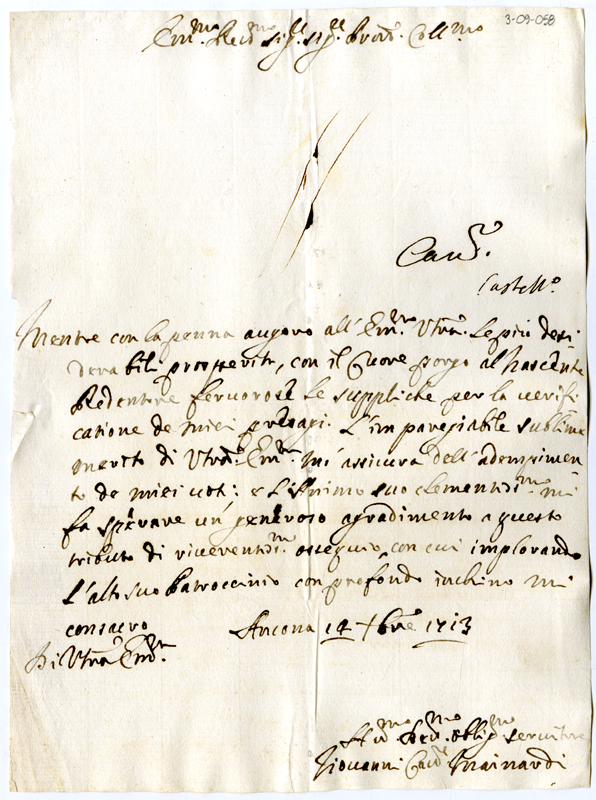 3-09-058
Em.mo Rev.mo Sig.re Sig.re Pron. Coll.mo
Car.
Castell.o
Mentre con la penna auguro all' Em.a V'tra. Le piu desi
derabili prosperità, con il Cuore porgo al Nascente
Redentore feruorose Le suppliche per la uerifi
catione de miei presagi. L'impareggiabile sublime
merito di V'tra Em.a m'assicura dell'adempimen
to de miei uoti; e L'Animo suo clementis.mo mi
fa sperare un generoso agradimento a questo
tributo di riuerentis.mo ossequio, con cui implorando
L'alto suo Patroccinio con profondo inchino mi
consacro Ancona 14 Xbre 1713
Di V'tra Em.a
H.mo Dev.mo Obblig.mo Seruitore
Giovanni Mainardi